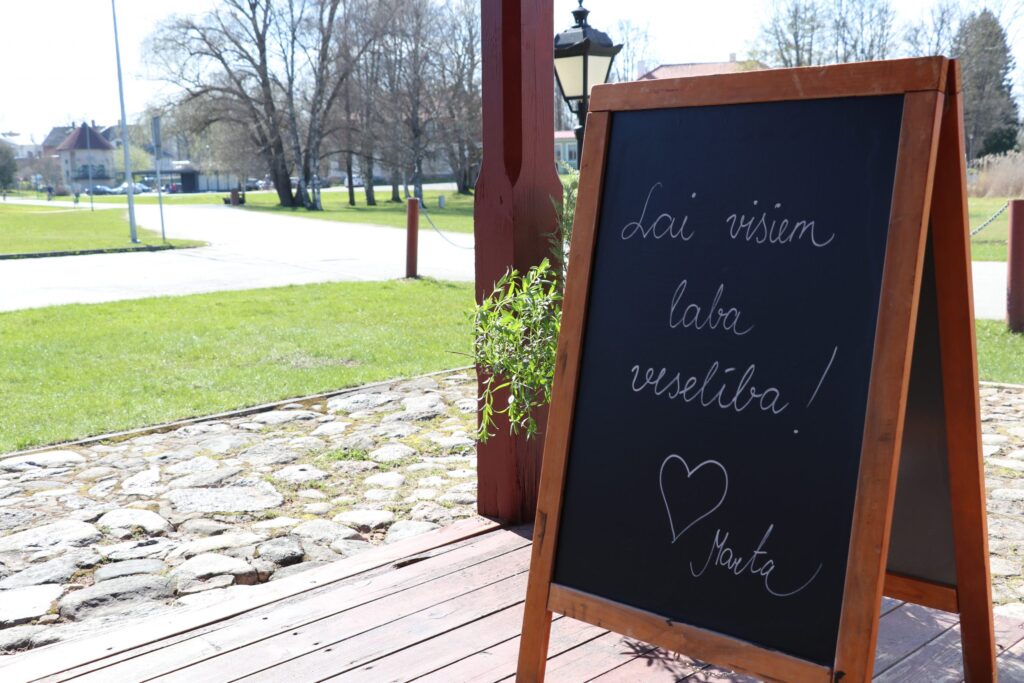 Lai visiem
laba
veselība!
Marta